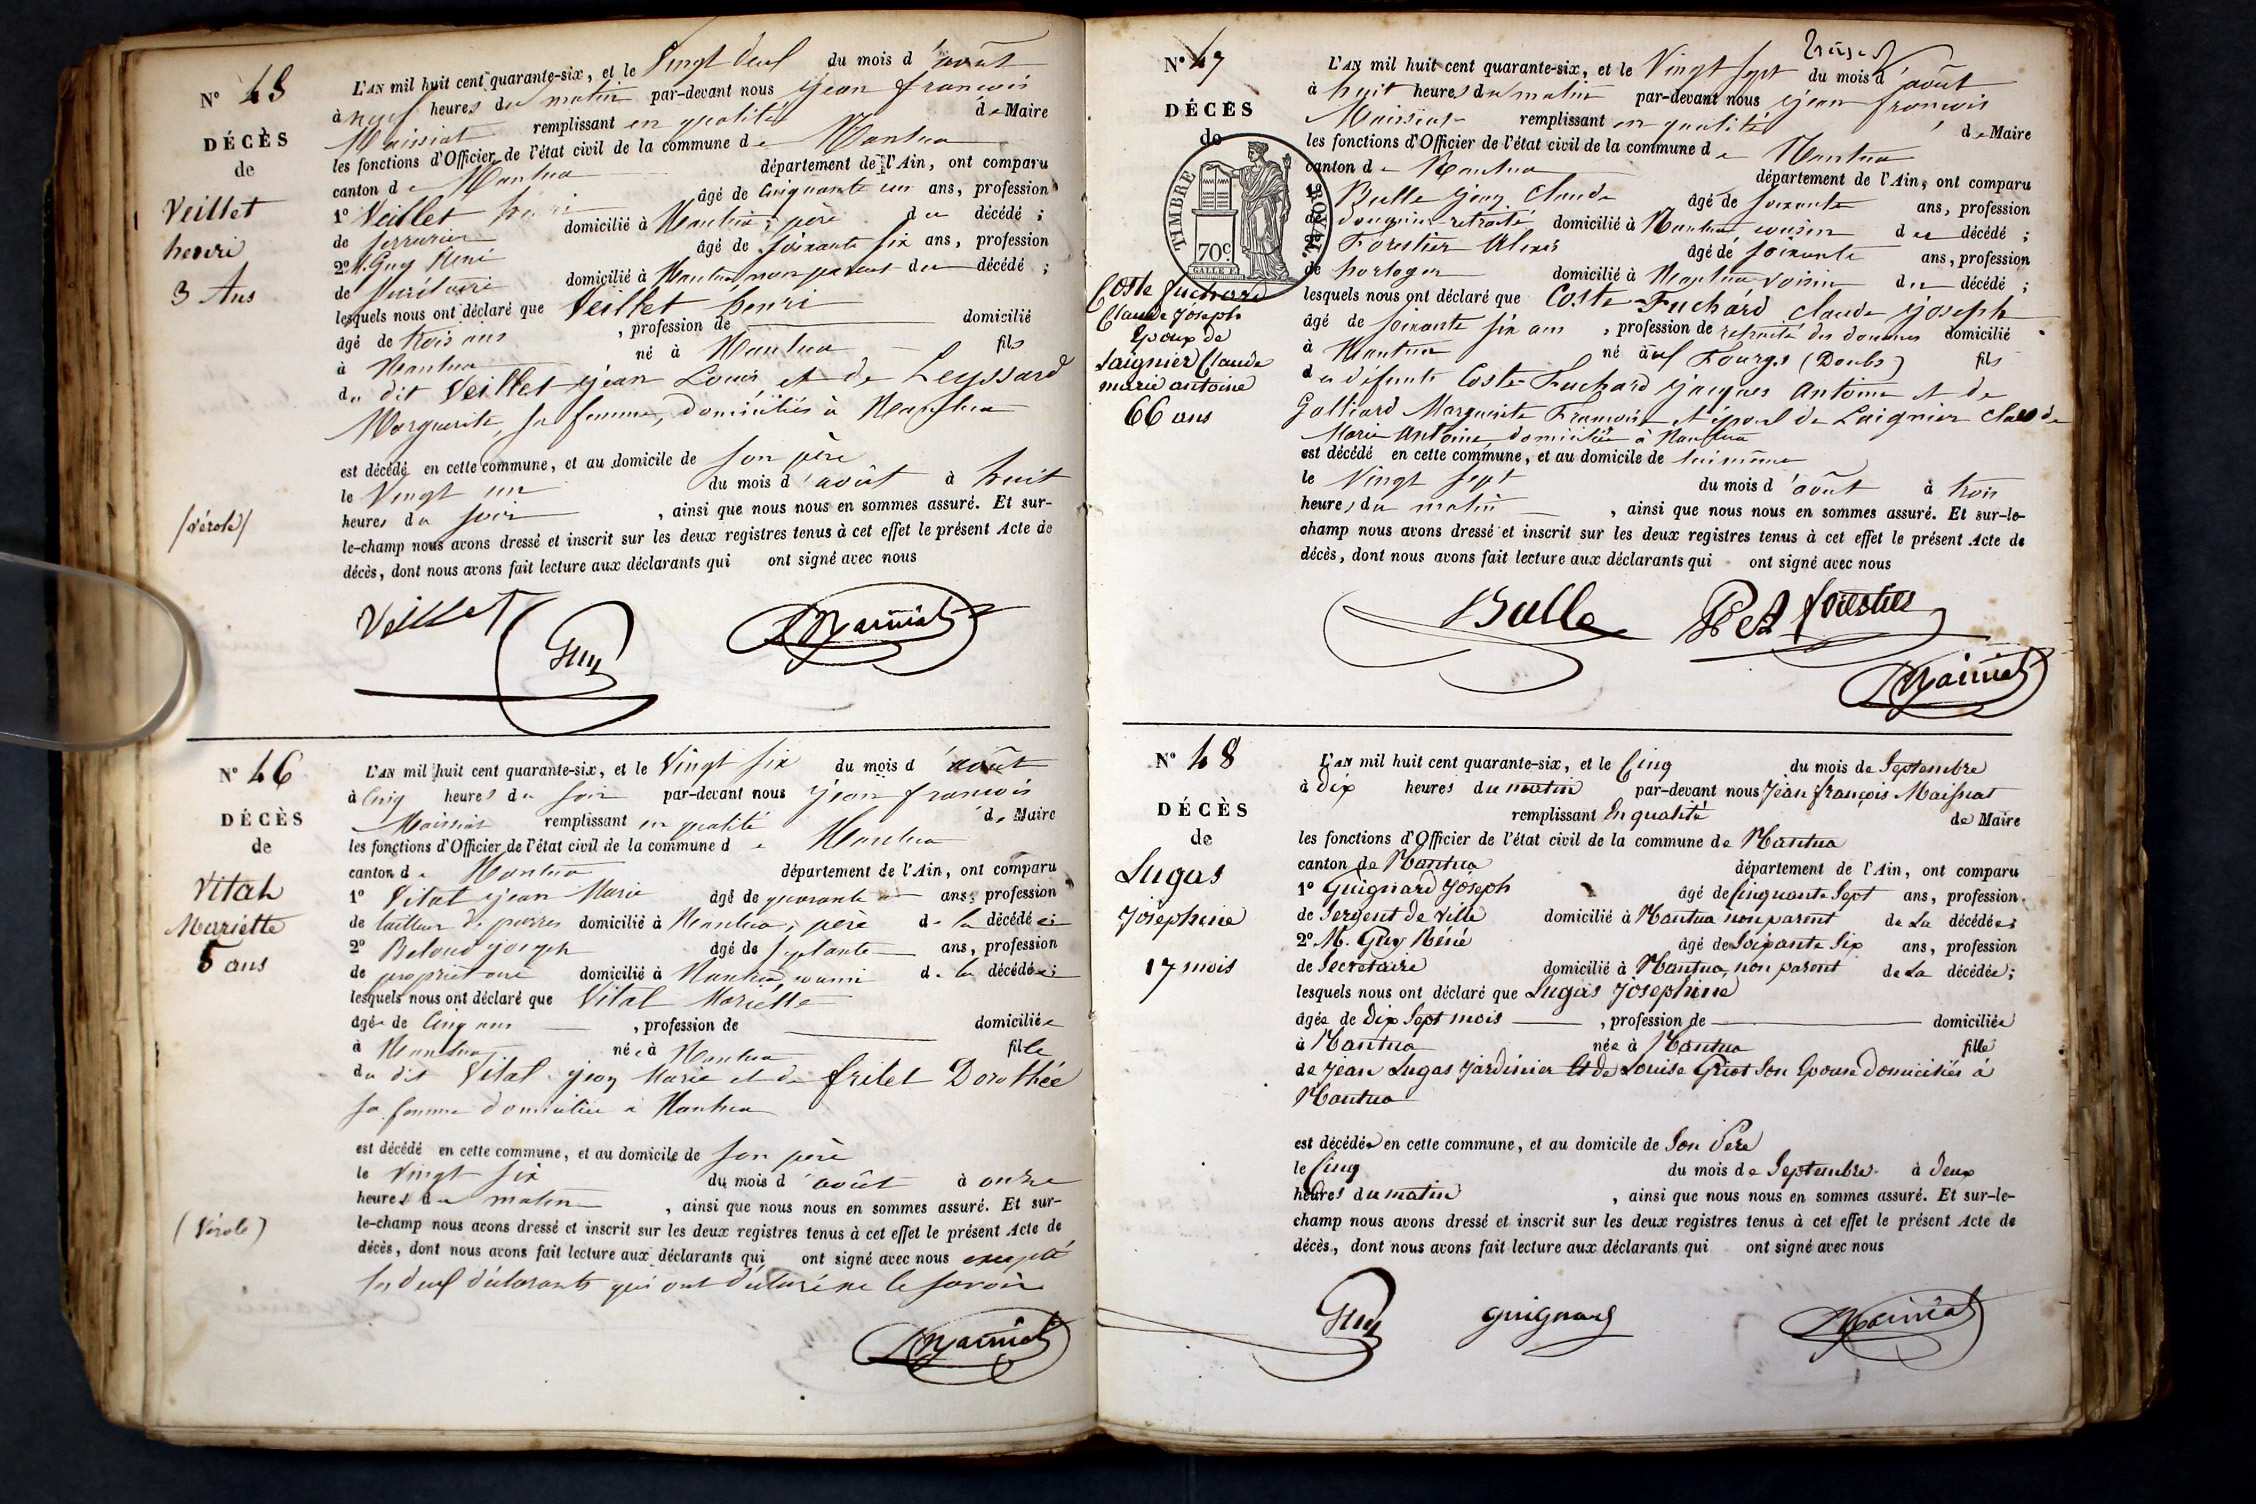 N° 45
DÉCÈS
de
Veillet
henri
3 Ans
(vérole)
L'AN mil huit cent quarante-six, et le Vingt deux du mois d'août
à neuf heures du matin par-devant nous jean françois
Maissiat remplissant en qualité de Maire
les fonctions d'Officier de l'état civil de la commune de Nantua
canton de Nantua département de l'Ain, ont comparu
1° Veillet âgé de Cinquante un ans, profession
de serrurier domicilié à Nantua, père du décédé ;
2° M. Guy Réné âgé de soixante six ans, profession
de Secrétaire domicilié à Nantua, non parent du décédé ;
lesquels nous ont déclaré que Veillet henri
âgé de trois ans , profession de domicilié
à Nantua né à Nantua fils
du dit Veillet jean Louis et de Leyssard
Marguerite, sa femme, domiciliés à Nantua
est décédé en cette commune, et au domicile de son père
le Vingt un du mois d'août à huit
heures du soir , ainsi que nous nous en sommes assuré. Et sur-
le-champ nous avons dressé et inscrit sur les deux registres tenus à cet effet le présent Acte de
décès, dont nous avons fait lecture aux déclarants qui ont signé avec nous
Veillet Guy Maissiat
N° 46
DÉCÈS
de
Vital
Mariette
5 ans
(Vérole)
L'AN mil huit cent quarante-six, et le Vingt six du mois d'août
à Cinq heures du soir par-devant nous jean françois
Maissiat remplissant en qualité de Maire
les fonctions d'Officier de l'état civil de la commune de Nantua
canton de Nantua département de l'Ain, ont comparu
1° Vital jean Marie âgé de quarante ans, profession
de tailleur de pierres domicilié à Nantua, père de la décédée ;
2° joseph âgé de septante ans, profession
de propriétaire domicilié à Nantua de la décédée ;
lesquels nous ont déclaré que Vital Mariette
âgée de Cinq ans , profession de domiciliée
à Nantua née à Nantua fille
du dit Vital jean Marie et de frilet Dorothée
sa femme domiciliés à Nantua
est décédé en cette commune, et au domicile de son père
le Vingt six du mois d'août à onze
heures du matin , ainsi que nous nous en sommes assuré. Et sur-
le-champ nous avons dressé et inscrit sur les deux registres tenus à cet effet le présent Acte de
décès, dont nous avons fait lecture aux déclarants qui ont signé avec nous excepté
les deux déclarants qui ont déclaré ne le savoir
Maissiat
N° 47
DÉCÈS
de
TIMBRE ROYAL
70c
Coste fuchard
Claude Joseph
Epoux de
Laignier Claude
marie antoine
66 ans
L'AN mil huit cent quarante-six, et le Vingt sept du mois d'août
à huit heures du matin par-devant nous jean françois
Maissiat remplissant en qualité de Maire
les fonctions d'Officier de l'état civil de la commune de Nantua
canton de Nantua département de l'Ain, ont comparu
Bulle jean Claude âgé de soixante ans, profession
de douanier retraité domicilié à Nantua cousin du décédé ;
Forestier Alexis âgé de soixante ans, profession
de horloger domicilié à Nantua voisin du décédé ;
lesquels nous ont déclaré que Coste-Fuchard claude joseph
âgé de soixante six ans , profession de retraité des douanes domicilié
à Nantua né aux Fourgs (Doubs) fils
de défunts Coste-Fuchard jacques Antoine et de
Galliard Marguerite Françoise et époux de Laignier Claude
Marie Antoine, domiciliée à Nantua
est décédé en cette commune, et au domicile de lui même
le Vingt sept du mois d'août à trois
heures du matin , ainsi que nous nous en sommes assuré. Et sur-le-
champ nous avons dressé et inscrit sur les deux registres tenus à cet effet le présent Acte de
décès, dont nous avons fait lecture aux déclarants qui ont signé avec nous
Bulle forestier
Maissiat
N° 48
DÉCÈS
de
Lugas
Joséphine
17 mois
L'AN mil huit cent quarante-six, et le Cinq du mois de Septembre
à Dix heures du matin par-devant nous Jean françois Maissiat
remplissant En qualité de Maire
les fonctions d'Officier de l'état civil de la commune de Nantua
canton de Nantua département de l'Ain, ont comparu
1° Guignard Joseph âgé de Cinquante Sept ans, profession
de Sergent de ville domicilié à Nantua non parent de La décédée ;
2° M. Guy Réné âgé de Soixante Six ans, profession
de Secretaire domicilié à Nantua, non parent de La décédée ;
lesquels nous ont déclaré que Lugas Joséphine
âgée de Dix Sept mois , profession de domiciliée
à Nantua née à Nantua fille
de Jean Lugas Jardinier Et de Louise Griot Son Epouse domiciliés à
Nantua
est décédée en cette commune, et au domicile de Son Pere
le Cinq du mois de Septembre à Deux
heures du matin , ainsi que nous nous en sommes assuré. Et sur-le-
champ nous avons dressé et inscrit sur les deux registres tenus à cet effet le présent Acte de
décès, dont nous avons fait lecture aux déclarants qui ont signé avec nous
Guy guignard Maissiat